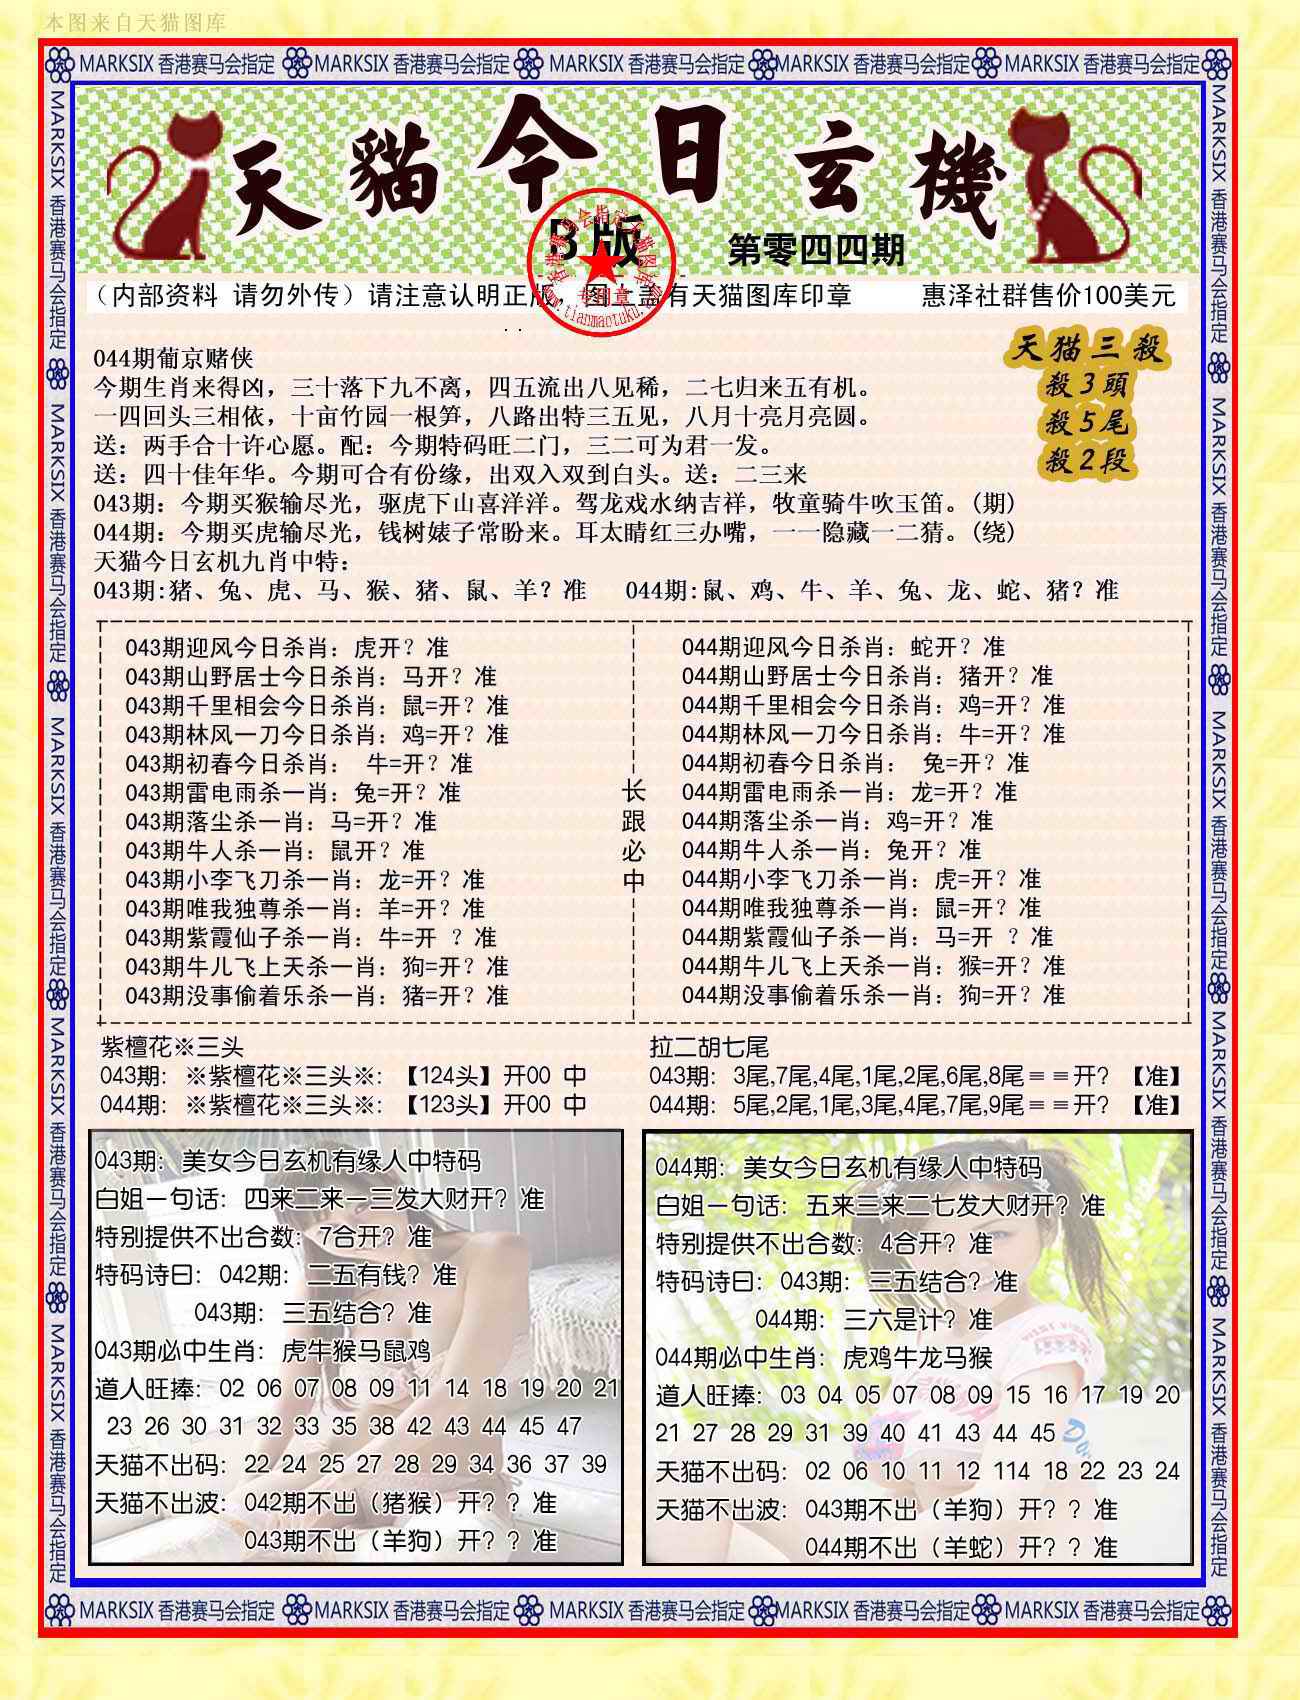 本图来自天猫图库
MARKSIX 香港赛马会指定 MARKSIX 香港赛马会指定 MARKSIX 香港赛马会指定 MARKSIX 香港赛马会指定 MARKSIX 香港赛马会指定
天貓今日玄機
B版
第零四四期
(内部资料 请勿外传)请注意认明正版，图上盖有天猫图库印章 惠泽社群售价100美元
专用章
www.tianmaotuku.com
天猫三殺
殺3頭
殺5尾
殺2段
044期葡京赌侠
今期生肖来得凶，三十落下九不离，四五流出八见稀，二七归来五有机。
一四回头三相依，十亩竹园一根笋，八路出特三五见，八月十亮月亮圆。
送：两手合十许心愿。配：今期特码旺二门，三二可为君一发。
送：四十佳年华。今期可合有份缘，出双入双到白头。送：二三来
043期：今期买猴输尽光，驱虎下山喜洋洋。驾龙戏水纳吉祥，牧童骑牛吹玉笛。(期)
044期：今期买虎输尽光，钱树婊子常盼来。耳太晴红三办嘴，一一隐藏一二猜。(绕)
天猫今日玄机九肖中特：
043期:猪、兔、虎、马、猴、猪、鼠、羊？准 044期:鼠、鸡、牛、羊、兔、龙、蛇、猪？准
043期迎风今日杀肖：虎开？准
043期山野居士今日杀肖：马开？准
043期千里相会今日杀肖：鼠=开？准
043期林风一刀今日杀肖：鸡=开？准
043期初春今日杀肖： 牛=开？准
043期雷电雨杀一肖：兔=开？准
043期落尘杀一肖：马=开？准
043期牛人杀一肖：鼠开？准
043期小李飞刀杀一肖：龙=开？准
043期唯我独尊杀一肖：羊=开？准
043期紫霞仙子杀一肖：牛=开 ？准
043期牛儿飞上天杀一肖：狗=开？准
043期没事偷着乐杀一肖：猪=开？准
长跟必中
044期迎风今日杀肖：蛇开？准
044期山野居士今日杀肖：猪开？准
044期千里相会今日杀肖：鸡=开？准
044期林风一刀今日杀肖：牛=开？准
044期初春今日杀肖： 兔=开？准
044期雷电雨杀一肖：龙=开？准
044期落尘杀一肖：鸡=开？准
044期牛人杀一肖：兔开？准
044期小李飞刀杀一肖：虎=开？准
044期唯我独尊杀一肖：鼠=开？准
044期紫霞仙子杀一肖：马=开 ？准
044期牛儿飞上天杀一肖：猴=开？准
044期没事偷着乐杀一肖：狗=开？准
紫檀花※三头
043期：※紫檀花※三头※：【124头】开00 中
044期：※紫檀花※三头※：【123头】开00 中
拉二胡七尾
043期：3尾,7尾,4尾,1尾,2尾,6尾,8尾≡≡开？【准】
044期：5尾,2尾,1尾,3尾,4尾,7尾,9尾≡≡开？【准】
043期：美女今日玄机有缘人中特码
白姐一句话：四来二来一三发大财开？准
特别提供不出合数：7合开？准
特码诗曰：042期：二五有钱？准
043期：三五结合？准
043期必中生肖：虎牛猴马鼠鸡
道人旺捧：02 06 07 08 09 11 14 18 19 20 21
23 26 30 31 32 33 35 38 42 43 44 45 47
天猫不出码：22 24 25 27 28 29 34 36 37 39
天猫不出波：042期不出（猪猴）开？？准
043期不出（羊狗）开？？准
044期：美女今日玄机有缘人中特码
白姐一句话：五来三来二七发大财开？准
特别提供不出合数：4合开？准
特码诗曰：043期：三五结合？准
044期：三六是计？准
044期必中生肖：虎鸡牛龙马猴
道人旺捧：03 04 05 07 08 09 15 16 17 19 20
21 27 28 29 31 39 40 41 43 44 45
天猫不出码：02 06 10 11 12 114 18 22 23 24
天猫不出波：043期不出（羊狗）开？？准
044期不出（羊蛇）开？？准
MARKSIX 香港赛马会指定 MARKSIX 香港赛马会指定 MARKSIX 香港赛马会指定 MARKSIX 香港赛马会指定 MARKSIX 香港赛马会指定
MARKSIX 香港赛马会指定 MARKSIX 香港赛马会指定 MARKSIX 香港赛马会指定 MARKSIX 香港赛马会指定 MARKSIX 香港赛马会指定
MARKSIX 香港赛马会指定 MARKSIX 香港赛马会指定 MARKSIX 香港赛马会指定 MARKSIX 香港赛马会指定 MARKSIX 香港赛马会指定